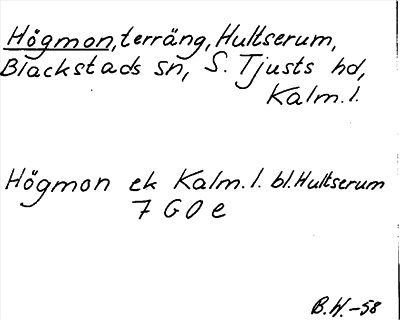 Högmon, terräng, Hultserum,
Blackstads sn, S. Tjusts hd,
Kalm.l.
Högmon ek Kalm.l. bl. Hultserum
7 G O e
B.W.-58